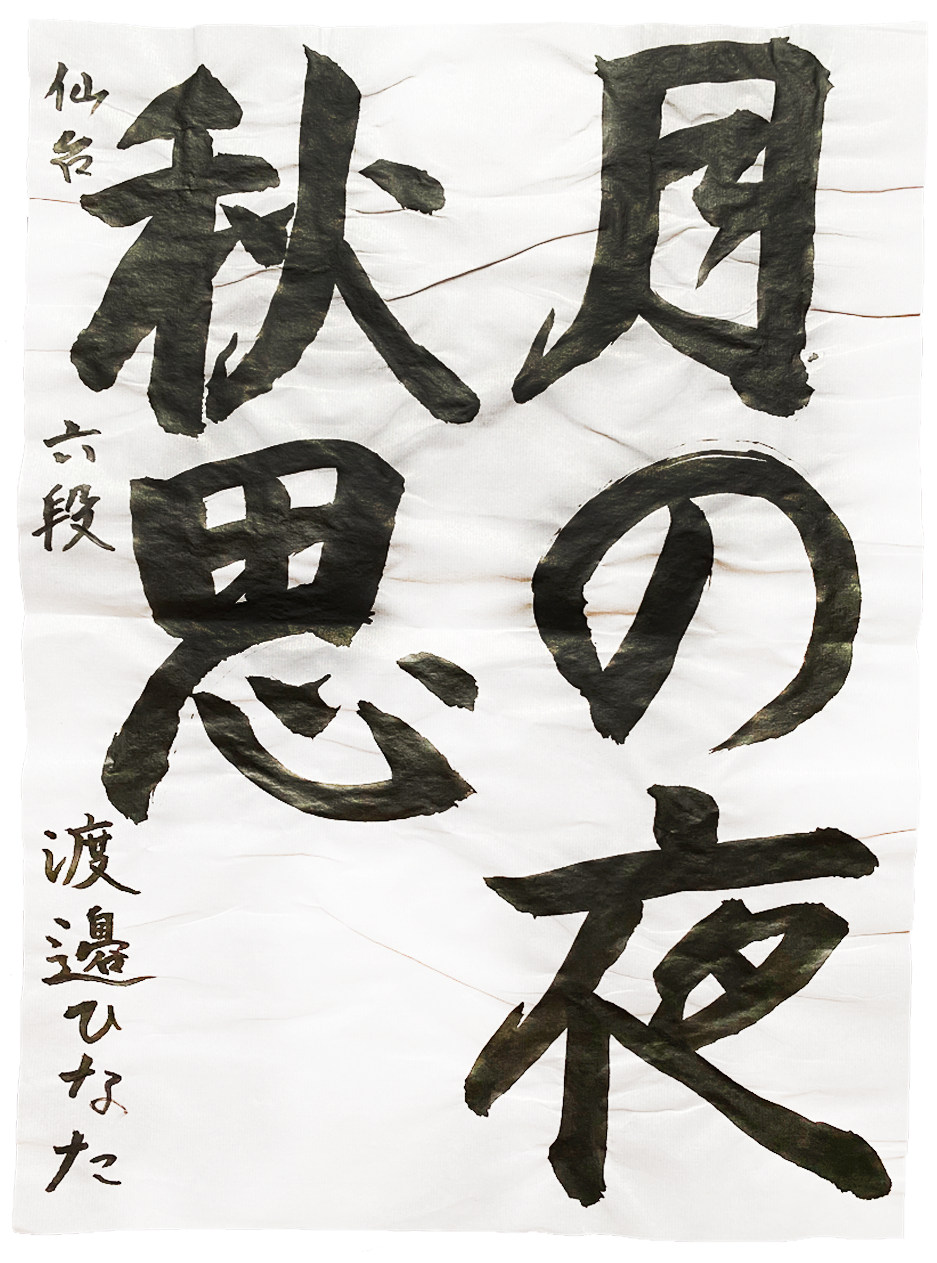 月の夜
秋思
仙台 六段 渡邉ひなた